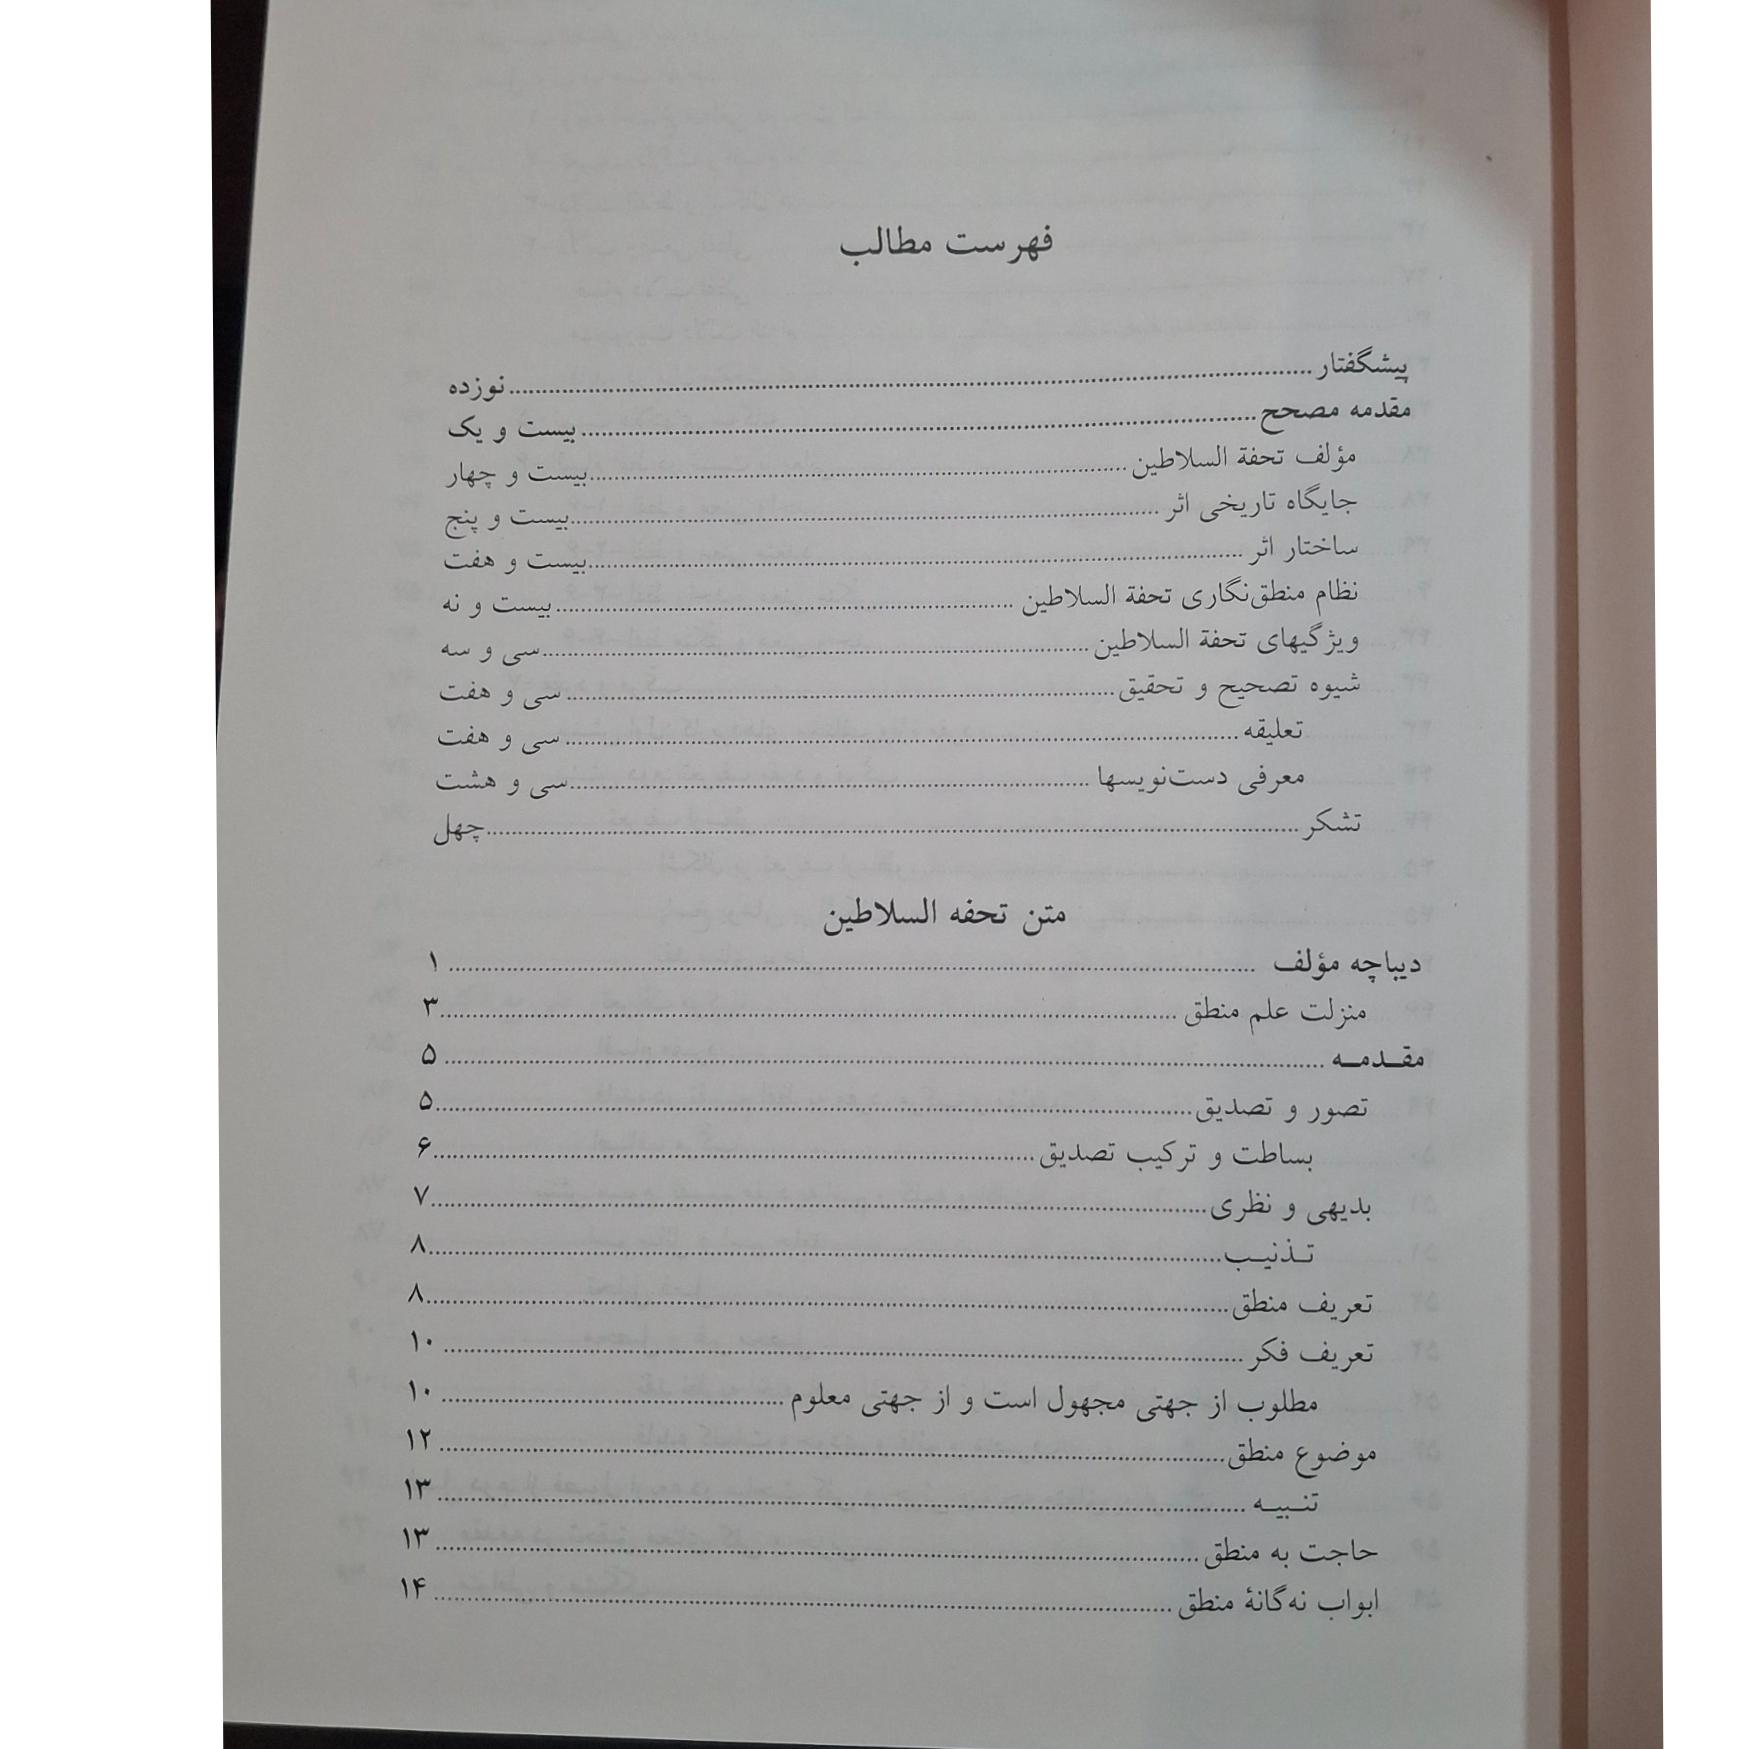 فهرست مطالب
پیشگفتار ... نوزده
مقدمه مصحح ... بیست و یک
مؤلف تحفة السلاطین ... بیست و چهار
جایگاه تاریخی اثر ... بیست و پنج
ساختار اثر ... بیست و هفت
نظام منطق‌نگاری تحفة السلاطین ... بیست و نه
ویژگیهای تحفة السلاطین ... سی و سه
شیوه تصحیح و تحقیق ... سی و هفت
تعلیقه ... سی و هفت
معرفی دست‌نویسها ... سی و هشت
تشکر ... چهل
متن تحفه السلاطین
دیباچه مؤلف ... ۱
منزلت علم منطق ... ۳
مقـدمـه ... ۵
تصور و تصدیق ... ۵
بساطت و ترکیب تصدیق ... ۶
بدیهی و نظری ... ۷
تـذنیـب ... ۸
تعریف منطق ... ۸
تعریف فکر ... ۱۰
مطلوب از جهتی مجهول است و از جهتی معلوم ... ۱۰
موضوع منطق ... ۱۲
تنـبیـه ... ۱۳
حاجت به منطق ... ۱۳
ابواب نه‌گانهٔ منطق ... ۱۴